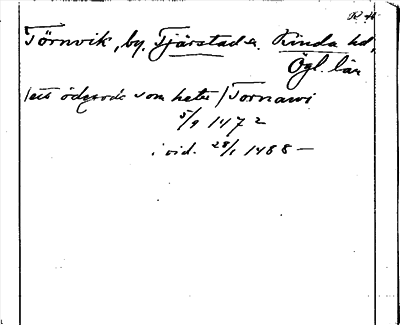 R 46
Törnvik, by. Tjärstad sn. Kinda hd,
Ögl. län
/ett ödegods som heter/Tornawi
5/9 1472
i vid. 28/1 1488 —